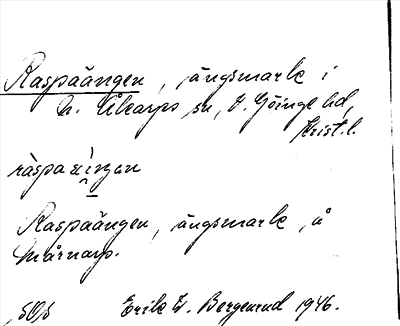 Raspaängen, ängsmark i
N. Åkarps sn, V. Göinge hd,
Krist. l.
ràspaæ̀ŋən
Raspaängen, ängsmark, å
Mårnarp.
Erik W. Bergenrud 1946.